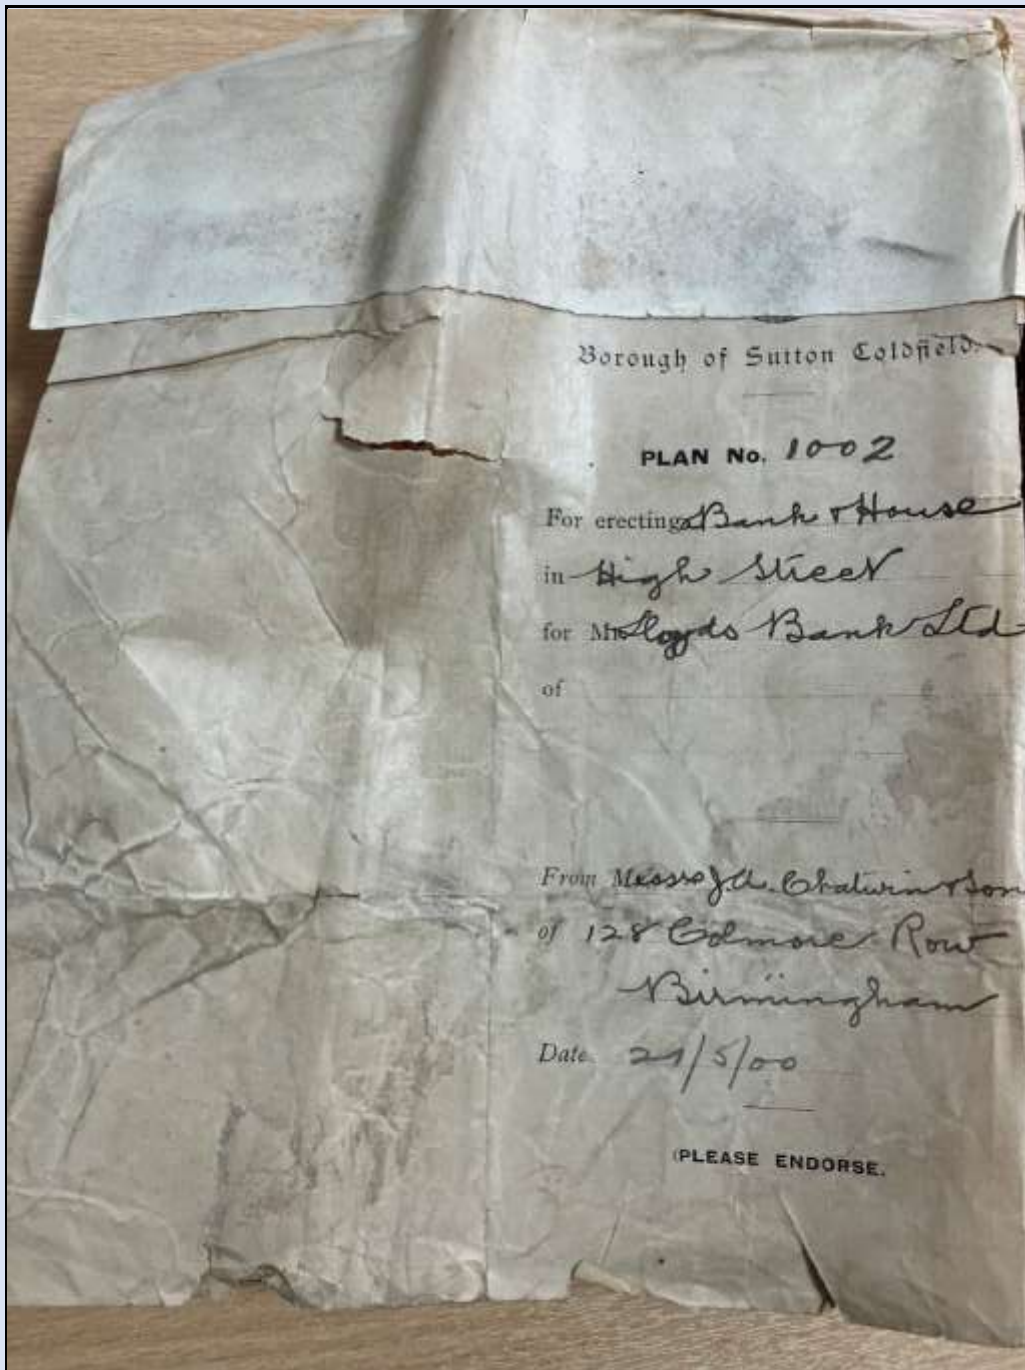 Borough of Sutton Coldfield.
PLAN No. 1002
For erecting Bank & House
in High Street
for Mr Lloyds Bank Ltd
of
From Messrs J.A. Chatwin & Son
of 128 Colmore Row
Birmingham
Date 21/5/00
(PLEASE ENDORSE.